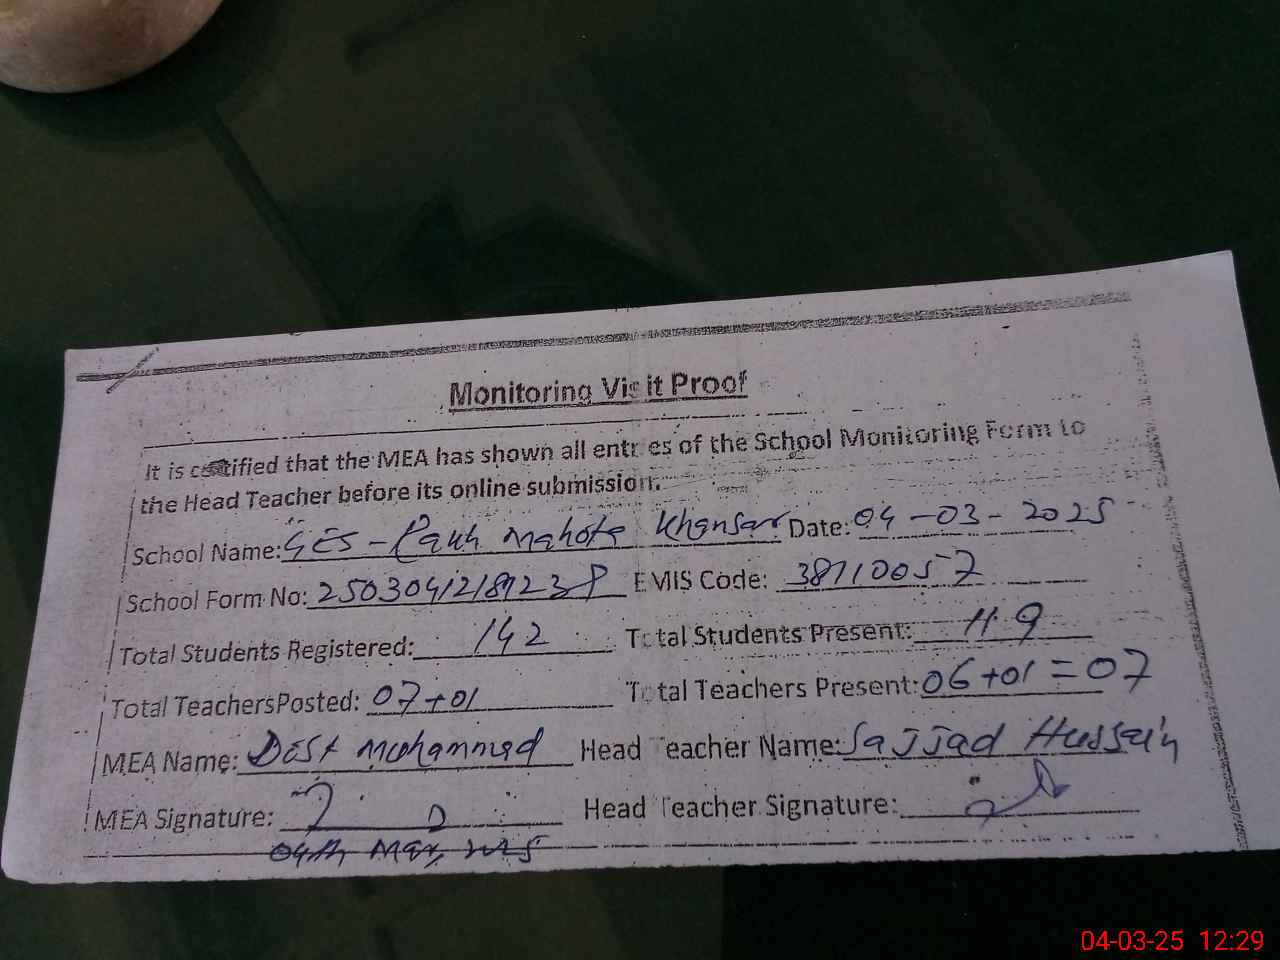 Monitoring Visit Proof
It is certified that the MEA has shown all entries of the School Monitoring Form to
the Head Teacher before its online submission.
School Name: GES - Mahota Khansar Date: 04-03-2025
School Form No: EMIS Code: 38710057
Total Students Registered: 142 Total Students Present: 119
Total TeachersPosted: 07+01 Total Teachers Present: 06+01=07
MEA Name: Dost Mohammad Head Teacher Name: Sajjad Hussain
MEA Signature: Head Teacher Signature:
04th Mar, 2025
04-03-25 12:29